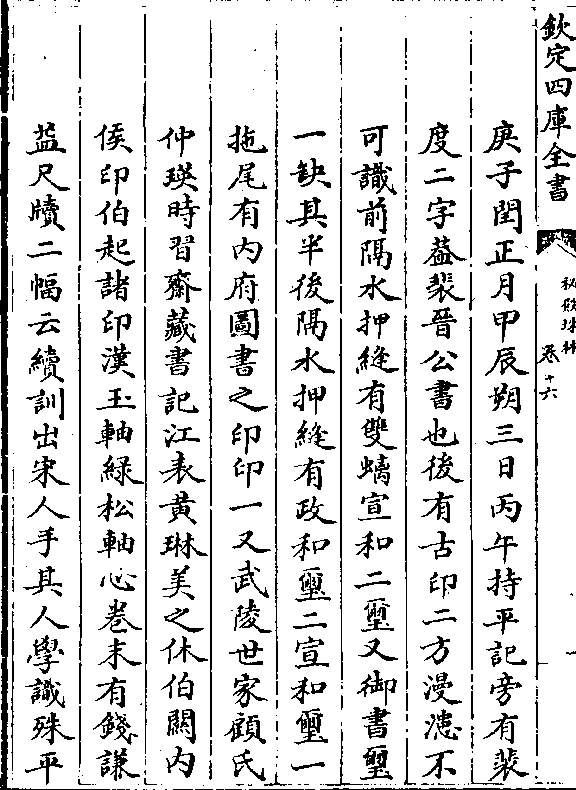 欽定四庫全書
秘殿珠林
卷十六
庚子閏正月甲辰朔三日丙午持平記旁有裴
度二字葢裴晉公書也後有古印二方漫漶不
可識前隔水押縫有雙螭宣和二璽又御書璽
一缺其半後隔水押縫有政和璽二宣和璽一
拖尾有内府圖書之印印一又武陵世家顧氏
仲瑛時習齋藏書記江表黄琳美之休伯闗内
侯印伯起諸印漢玉軸緑松軸心卷末有錢謙
益尺牘二幅云續訓出宋人手其人學識殊平